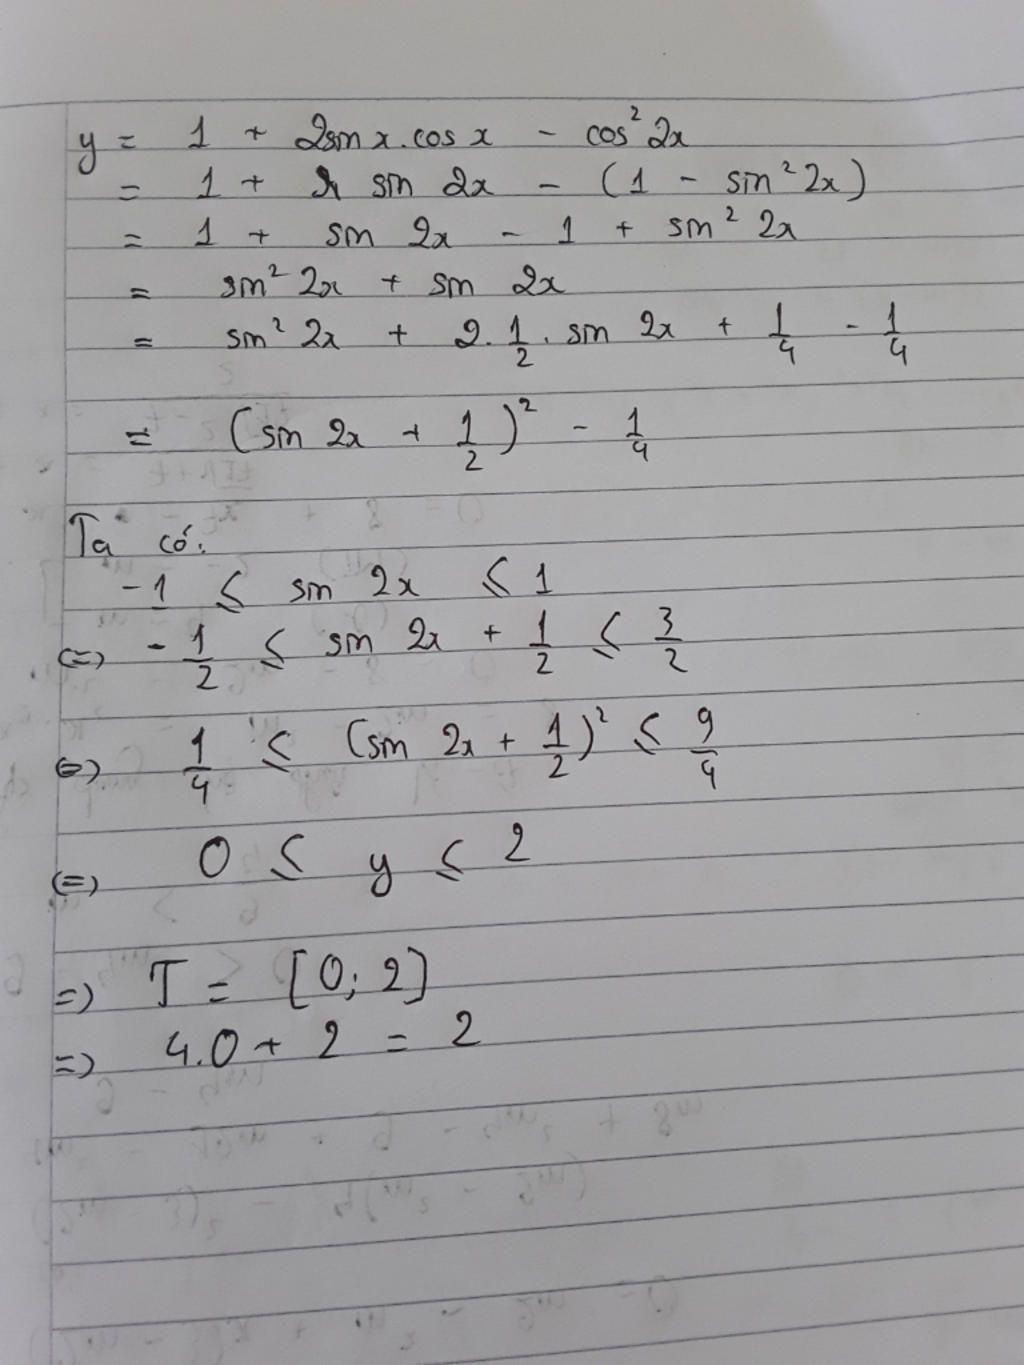 y = 1 + 2sin x.cos x - cos² 2x
= 1 + sin 2x - (1 - sin² 2x)
= 1 + sin 2x - 1 + sin² 2x
= sin² 2x + sin 2x
= sin² 2x + 2. 1/2 . sin 2x + 1/4 - 1/4
= (sin 2x + 1/2)² - 1/4
Ta có:
-1 ≤ sin 2x ≤ 1
(=) -1/2 ≤ sin 2x + 1/2 ≤ 3/2
(=) 1/4 ≤ (sin 2x + 1/2)² ≤ 9/4
(=) 0 ≤ y ≤ 2
=) T = [0; 2]
=) 4.0 + 2 = 2